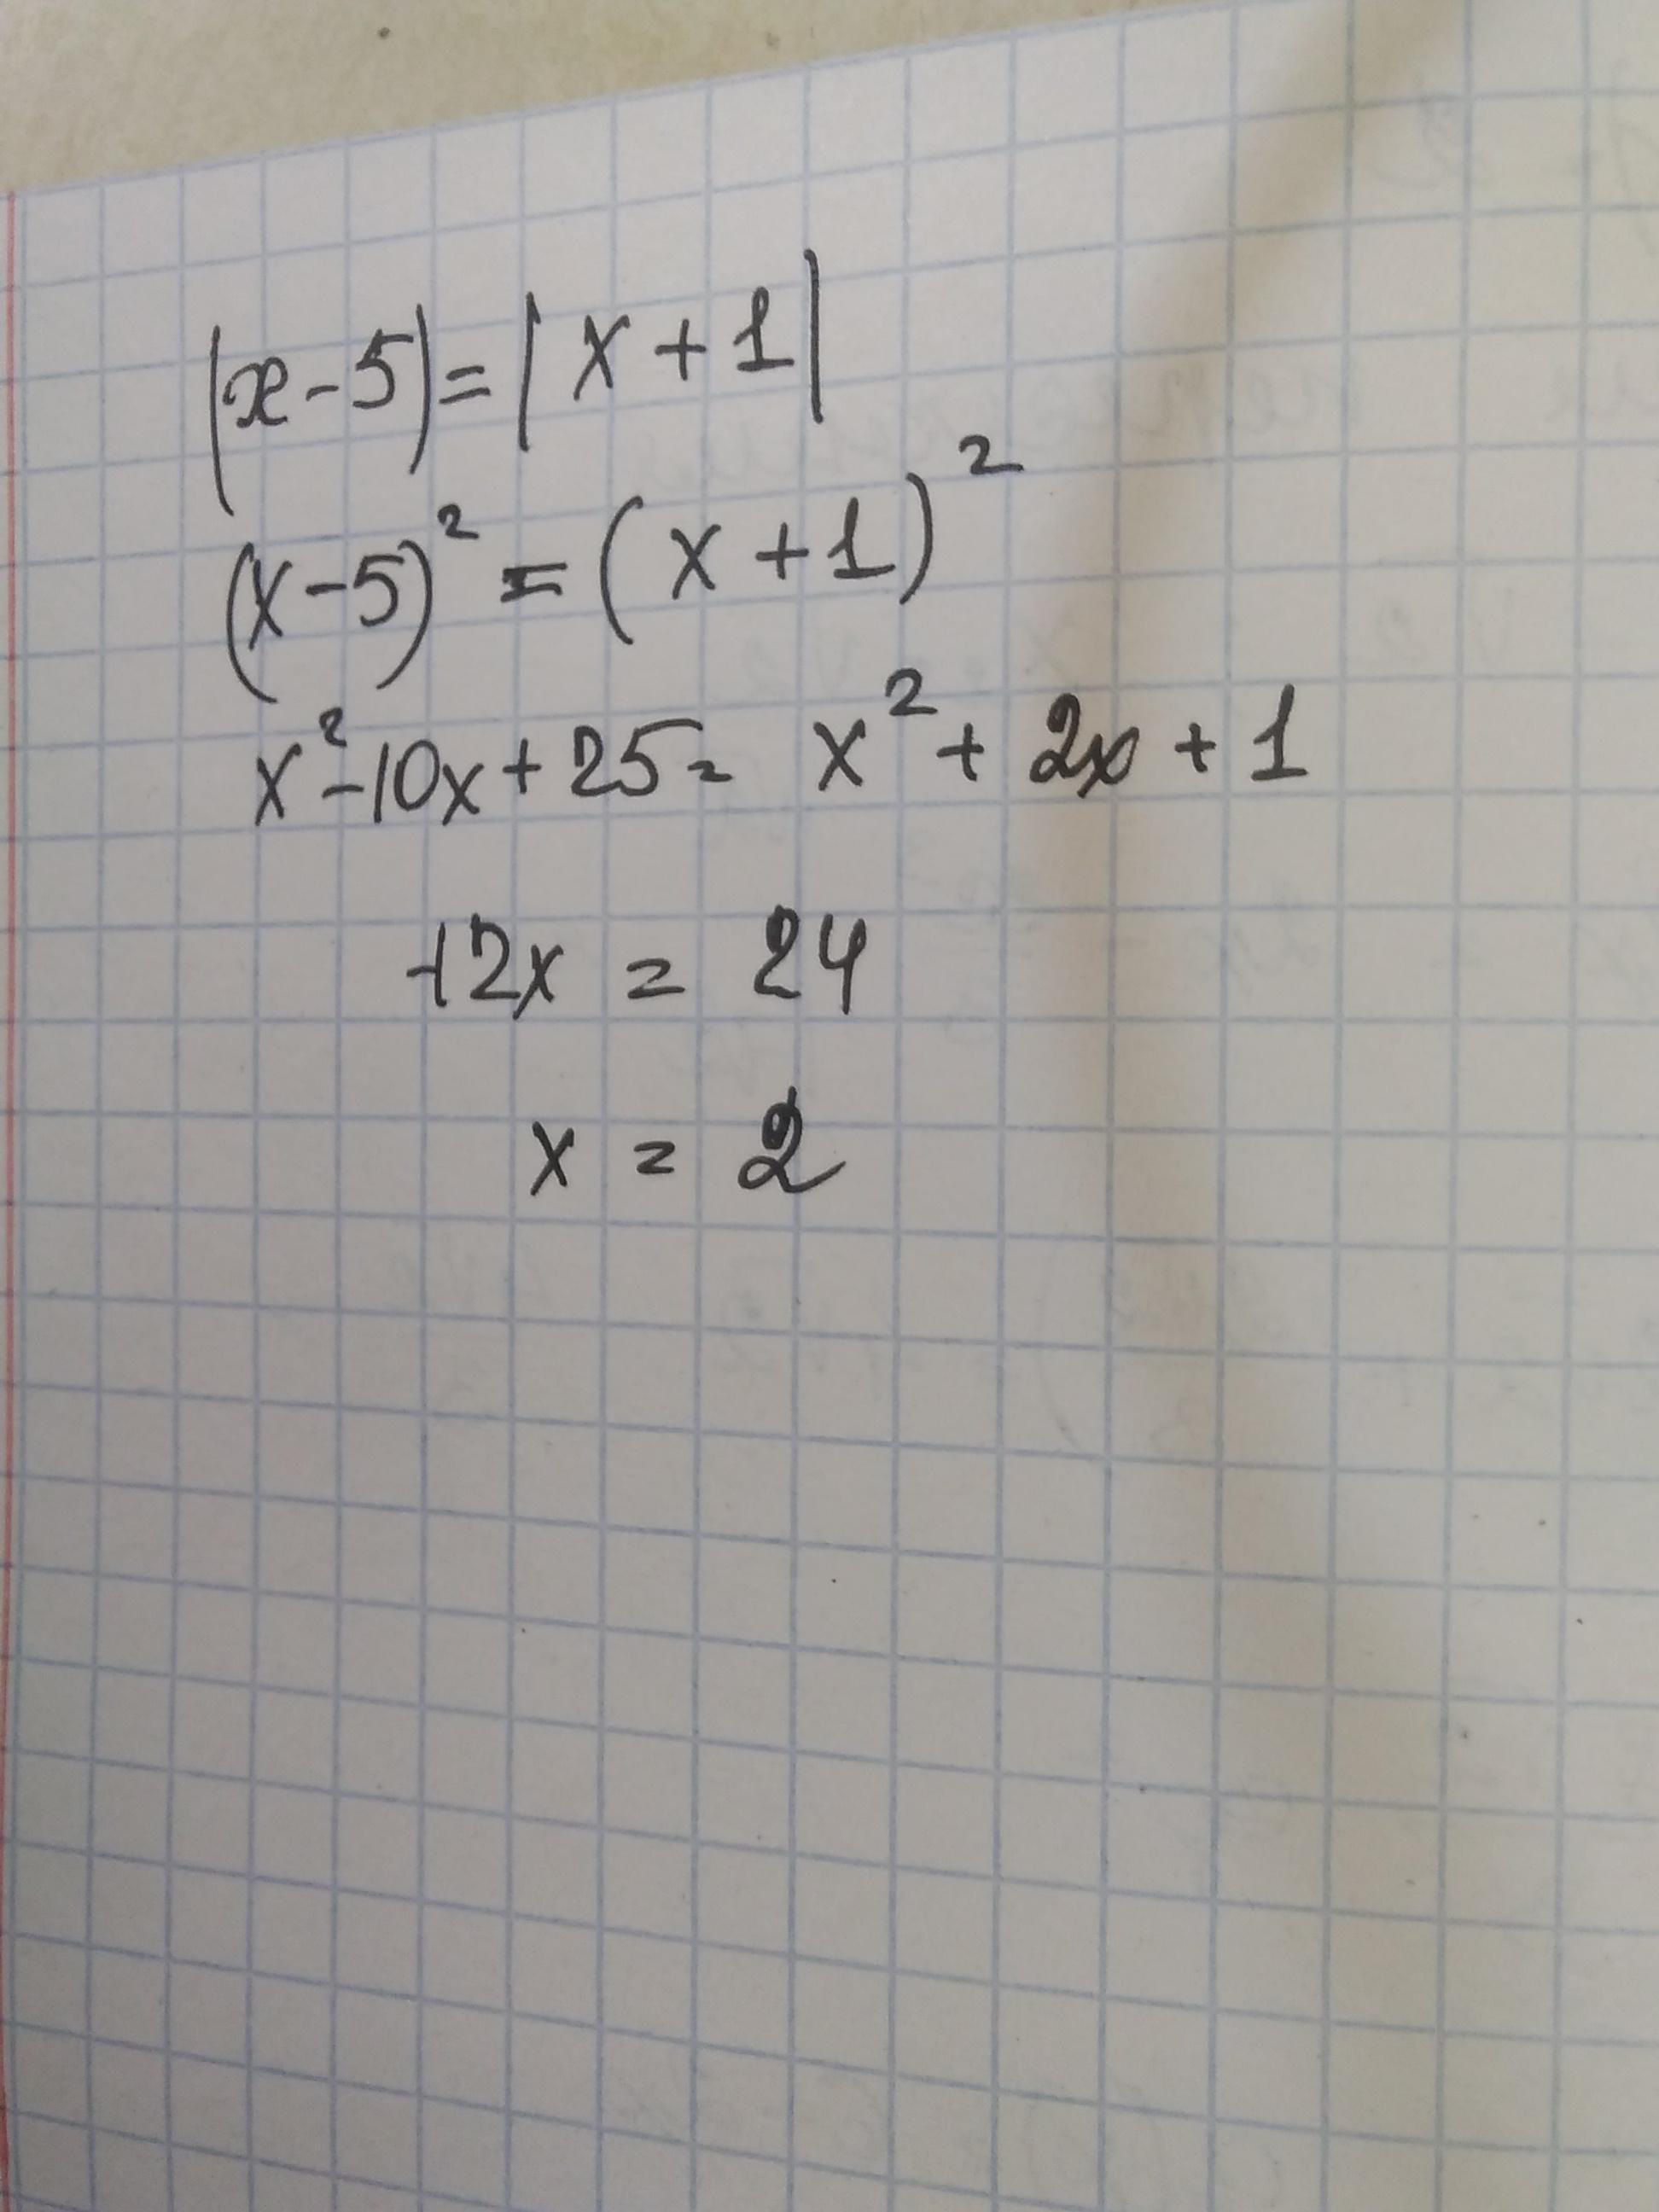 |x-5|=|x+1|
(x-5)²=(x+1)²
x²-10x+25=x²+2x+1
12x=24
x=2